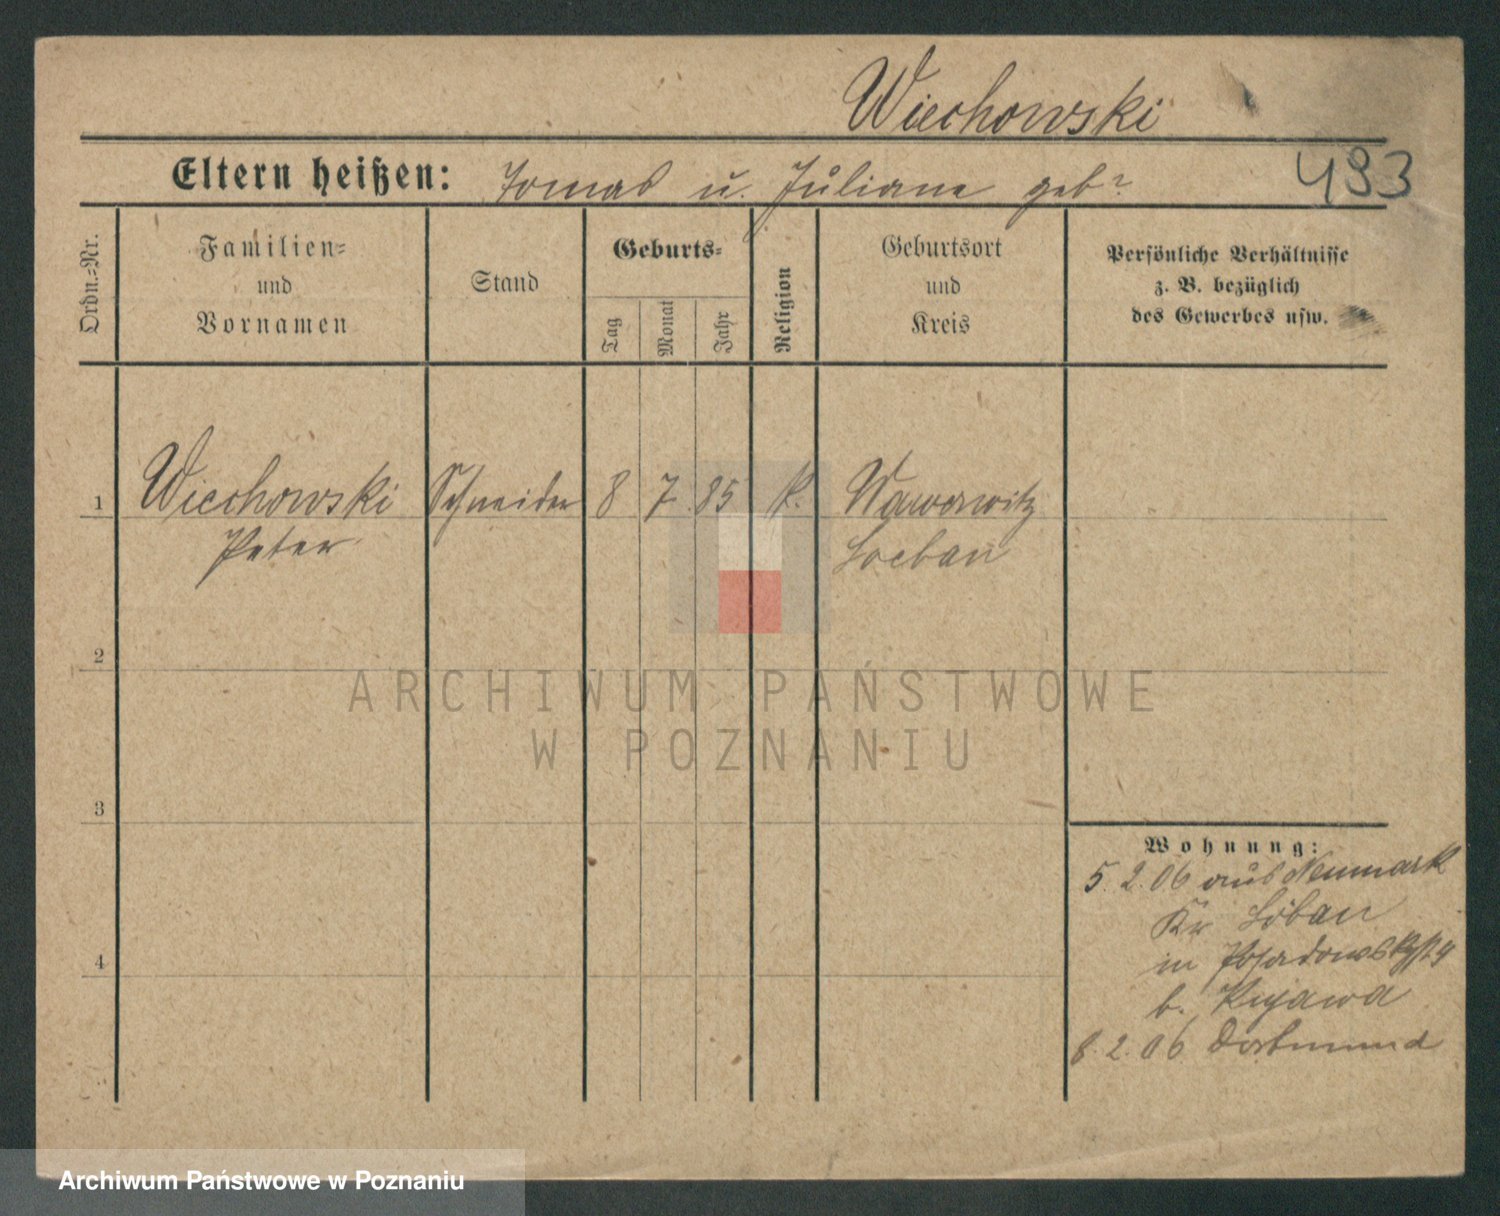 Wiechowski
Eltern heißen: Tomas u. Juliane geb?
493
Ordn.=Nr.
Familien=
und
Vornamen
Stand
Geburts=
Tag
Monat
Jahr
Religion
Geburtsort
und
Kreis
Persönliche Verhältnisse
z. B. bezüglich
des Gewerbes usw.
1 Wiechowski Schneider 8 7 85 K. Wawerwitz
Peter Loebau
2
ARCHIWUM PAŃSTWOWE
W POZNANIU
3
Wohnung:
5.2.06 aus Neumark
Kr Löbau
4
in Posadowskystr
b. Kujawa
8.2.06 Dortmund
Archiwum Państwowe w Poznaniu